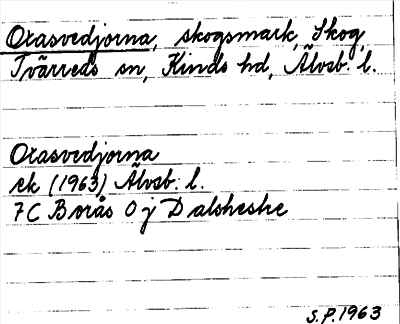 Orasvedjorna, skogsmark, Skog,
Tvärreds sn, Kinds hd, Älvsb. l.
Orasvedjorna
ek (1963) Älvsb. l.
7C Borås O j Dalsheske
S.P. 1963